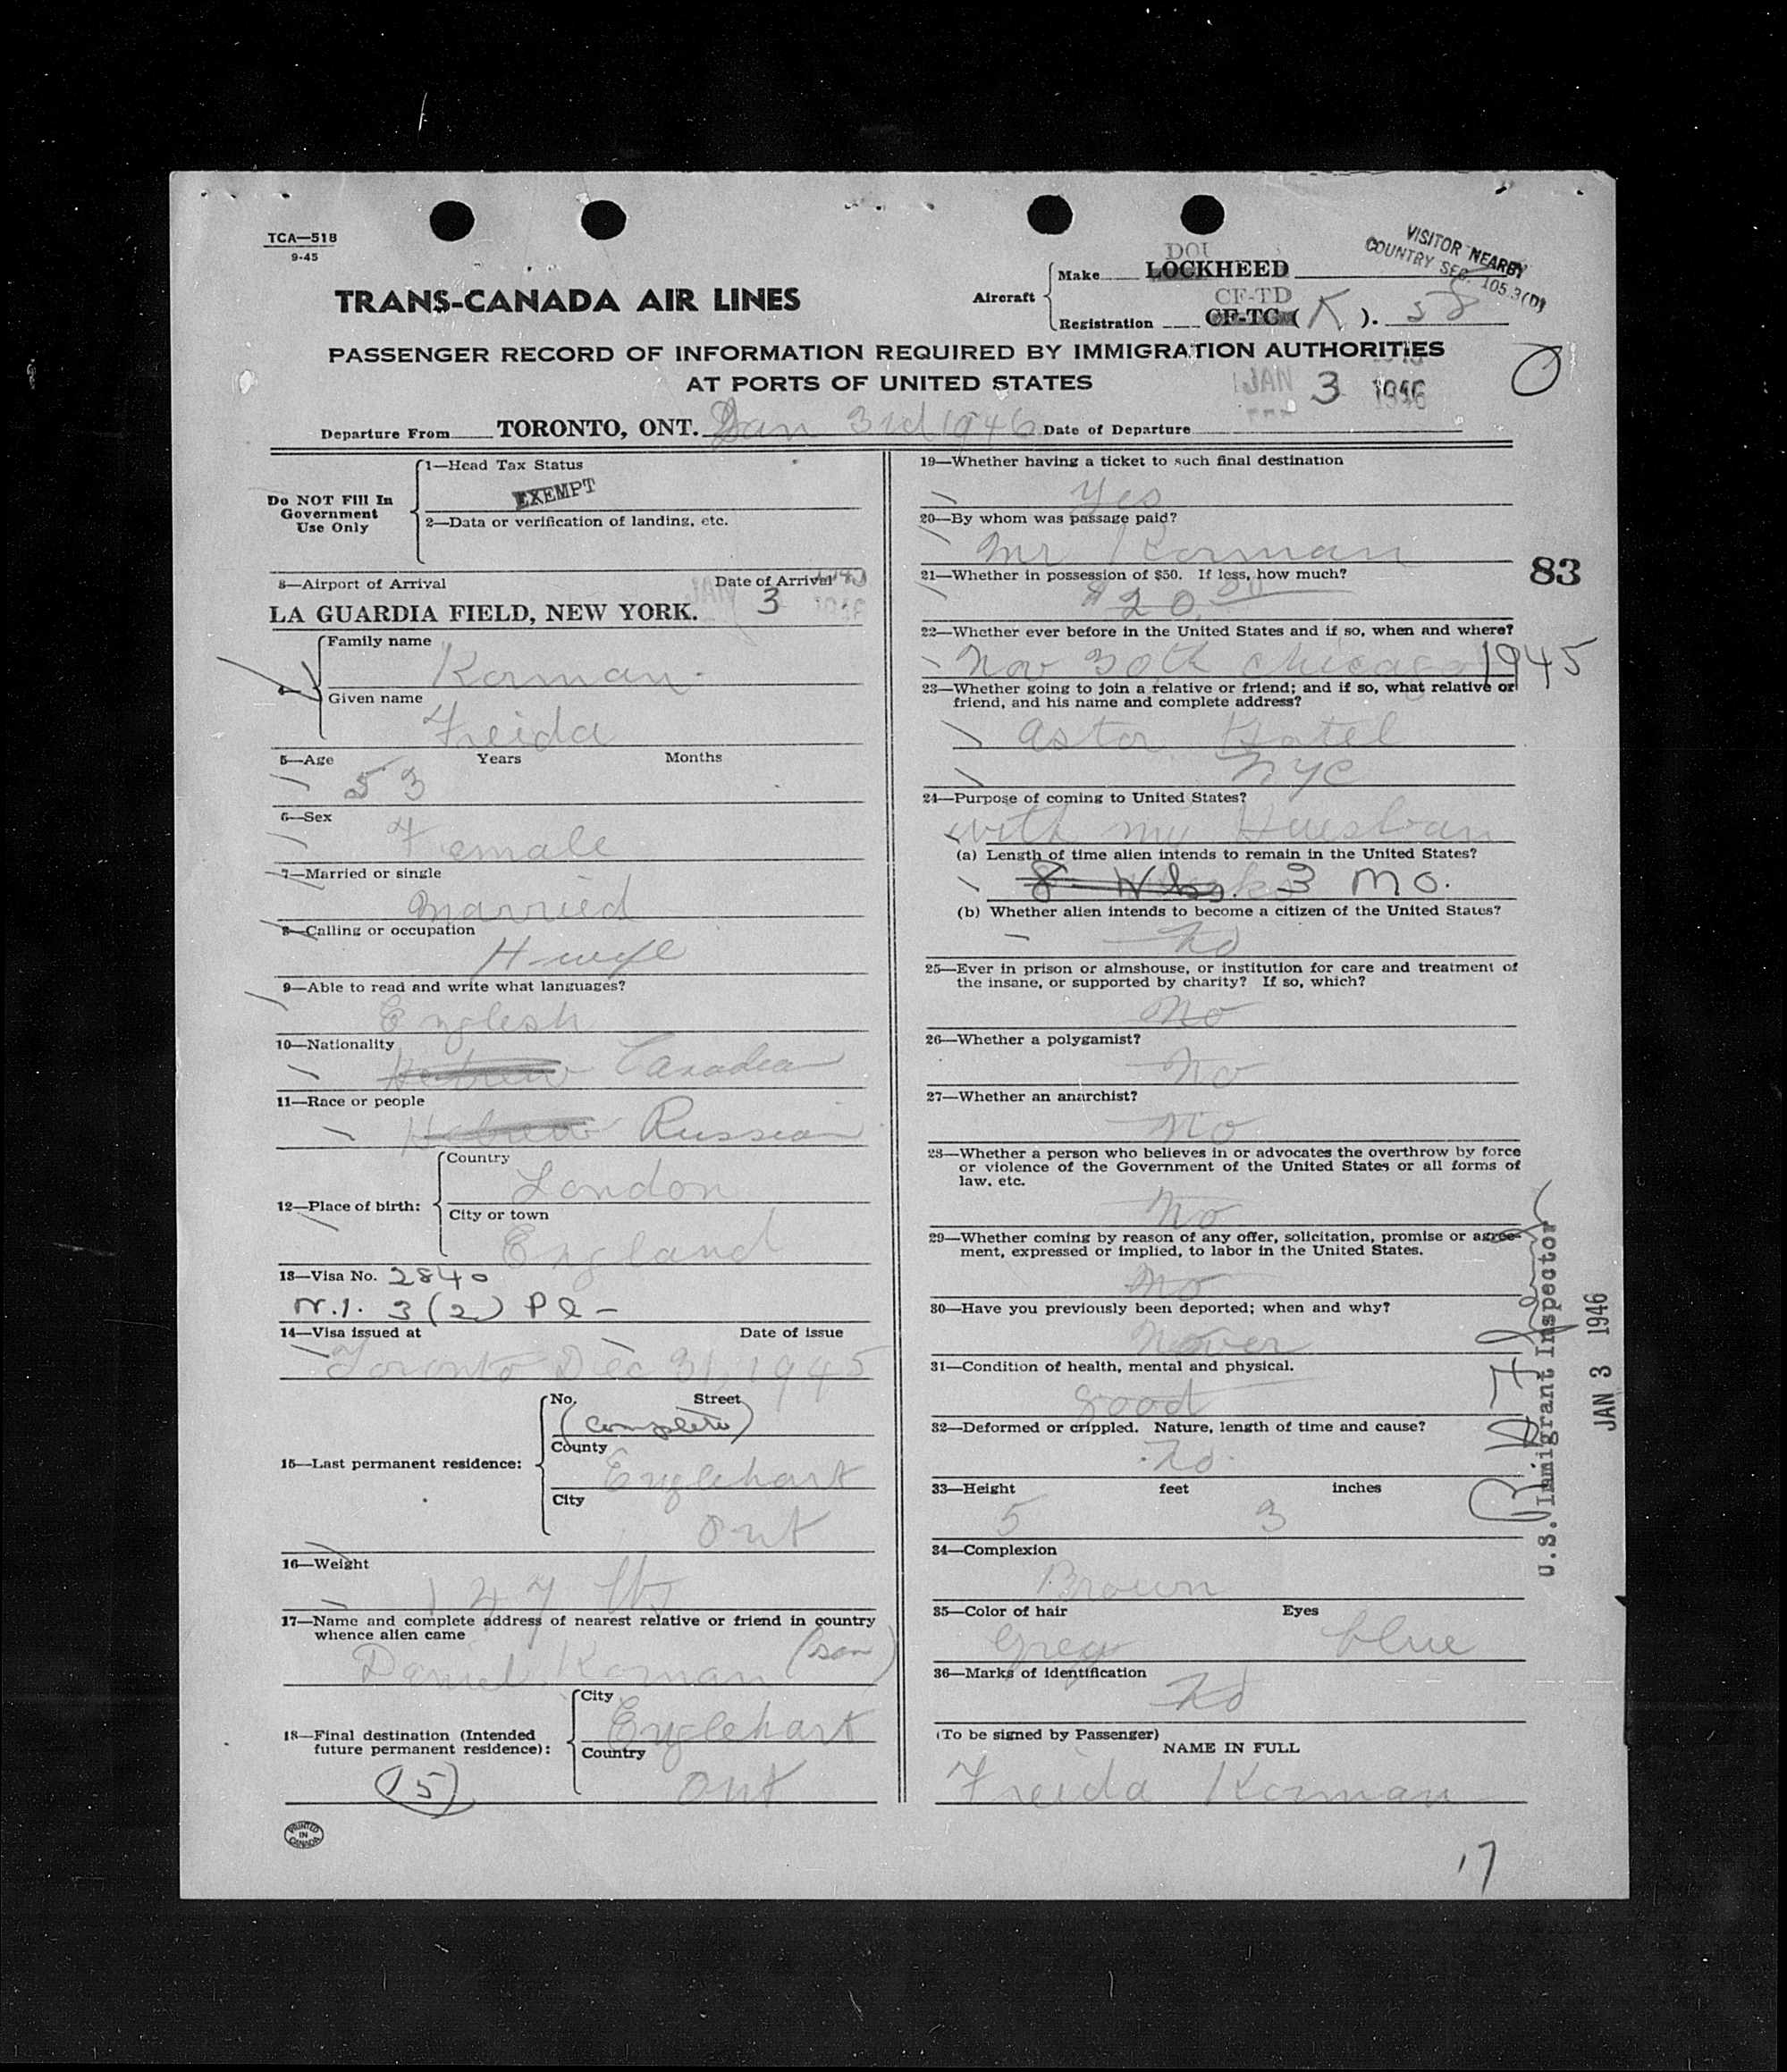 TCA—518
9-45
VISITOR NEARBY
COUNTRY SEC. 105.3(D)
TRANS-CANADA AIR LINES
Aircraft
Make
LOCKHEED
Registration
CF-TD
CF-TC ( K ). 58
PASSENGER RECORD OF INFORMATION REQUIRED BY IMMIGRATION AUTHORITIES
AT PORTS OF UNITED STATES
JAN 3 1946
Departure From TORONTO, ONT. Jan 3rd 1946 Date of Departure
Do NOT Fill In
Government
Use Only
1—Head Tax Status
EXEMPT
2—Data or verification of landing, etc.
3—Airport of Arrival Date of Arrival
LA GUARDIA FIELD, NEW YORK. 3
Family name
Korman
Given name
Freida
5—Age Years Months
53
6—Sex
Female
7—Married or single
Married
8—Calling or occupation
H-wife
9—Able to read and write what languages?
English
10—Nationality
Hebrew Canadian
11—Race or people
Hebrew Russian
12—Place of birth:
Country
London
City or town
England
13—Visa No. 2840
N.I. 3(2) Pl –
14—Visa issued at Date of issue
Toronto Dec 31, 1945
15—Last permanent residence:
No. Street
(Complete)
County
Englehart
City
Ont
16—Weight
147 lbs
17—Name and complete address of nearest relative or friend in country
whence alien came
Daniel Korman (son)
18—Final destination (Intended
future permanent residence):
City
Englehart
Country
Ont
(15)
PRINTED
IN
CANADA
19—Whether having a ticket to such final destination
Yes
20—By whom was passage paid?
Mr Korman
21—Whether in possession of $50. If less, how much?
$20.00
83
22—Whether ever before in the United States and if so, when and where?
Nov 30th Chicago 1945
23—Whether going to join a relative or friend; and if so, what relative or
friend, and his name and complete address?
Astor Hotel
NYC
24—Purpose of coming to United States?
with my Husban
(a) Length of time alien intends to remain in the United States?
8 Wks. 3 Mo.
(b) Whether alien intends to become a citizen of the United States?
No
25—Ever in prison or almshouse, or institution for care and treatment of
the insane, or supported by charity? If so, which?
No
26—Whether a polygamist?
No
27—Whether an anarchist?
No
28—Whether a person who believes in or advocates the overthrow by force
or violence of the Government of the United States or all forms of
law, etc.
No
29—Whether coming by reason of any offer, solicitation, promise or agree-
ment, expressed or implied, to labor in the United States.
No
30—Have you previously been deported; when and why?
Never
31—Condition of health, mental and physical.
good
32—Deformed or crippled. Nature, length of time and cause?
No
33—Height feet inches
5 3
34—Complexion
Brown
35—Color of hair Eyes
Grey blue
36—Marks of identification
No
(To be signed by Passenger)
NAME IN FULL
Freida Korman
U.S. Immigrant Inspector
JAN 3 1946
17